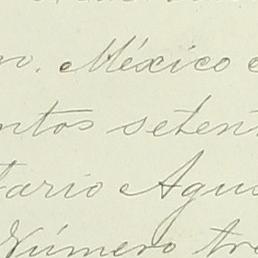 México
ntos setent
tario Agus
Número tre